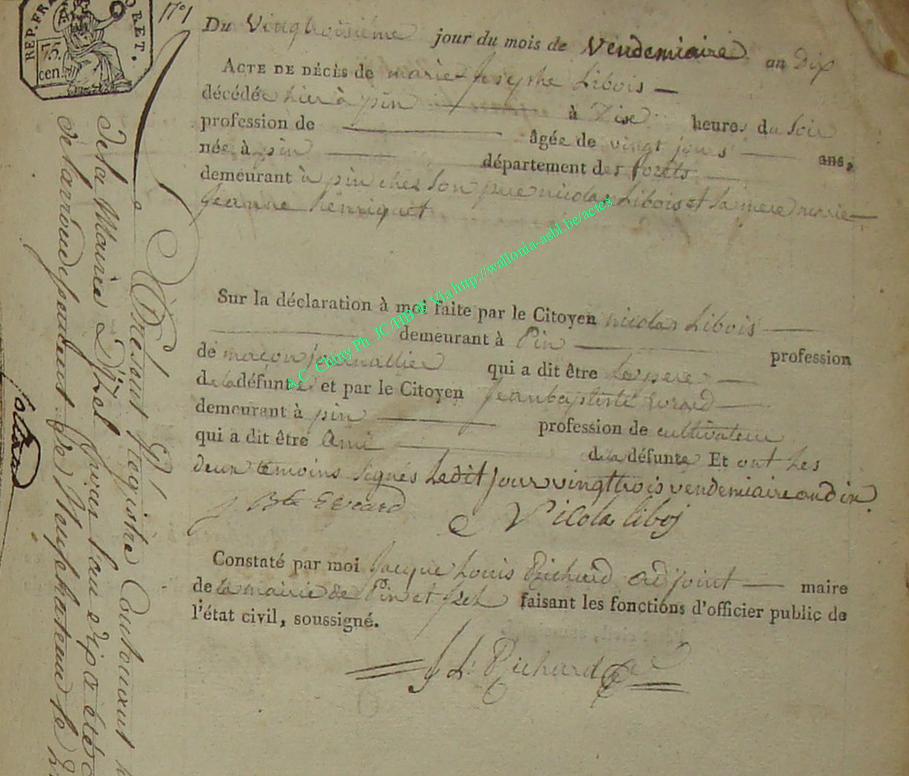 REP. FRA
ORET.
75.
cen.
Du vingtroisieme jour du mois de Vendemiaire an Dix
ACTE DE DÉCÈS de marie Josephe Libois —
décédée hier à pin — à Dix heures du soir
profession de — âgée de vingt jours — ans,
née à pin — département des forets —
demeurant à pin chez son pere nicolas Libois et sa mere marie —
Jeanne henriquet
Sur la déclaration à moi faite par le Citoyen nicolas Libois —
— demeurant à Pin — profession
de maçon journallier qui a dit être le pere —
de la défunte et par le Citoyen Jean baptiste —
demeurant à pin — profession de cultivateur
qui a dit être Ami — de la défunte Et ont les
deux temoins signés ledit jour vingtrois vendemiaire an dix
J Bte Evrard Nicola liboi
Constaté par moi Jacque Louis Richard adjoint — maire
de la mairie de Pin et Izel faisant les fonctions d'officier public de
l'état civil, soussigné.
J L Richard
A.C. Chiny Ph. JC HIBOT Via http://wallonia-asbl.be/actes
Le present Registre Contenant
de la Mairie D'Izel pour l'an dix a été
de l'arrondissement de Neufchateau le